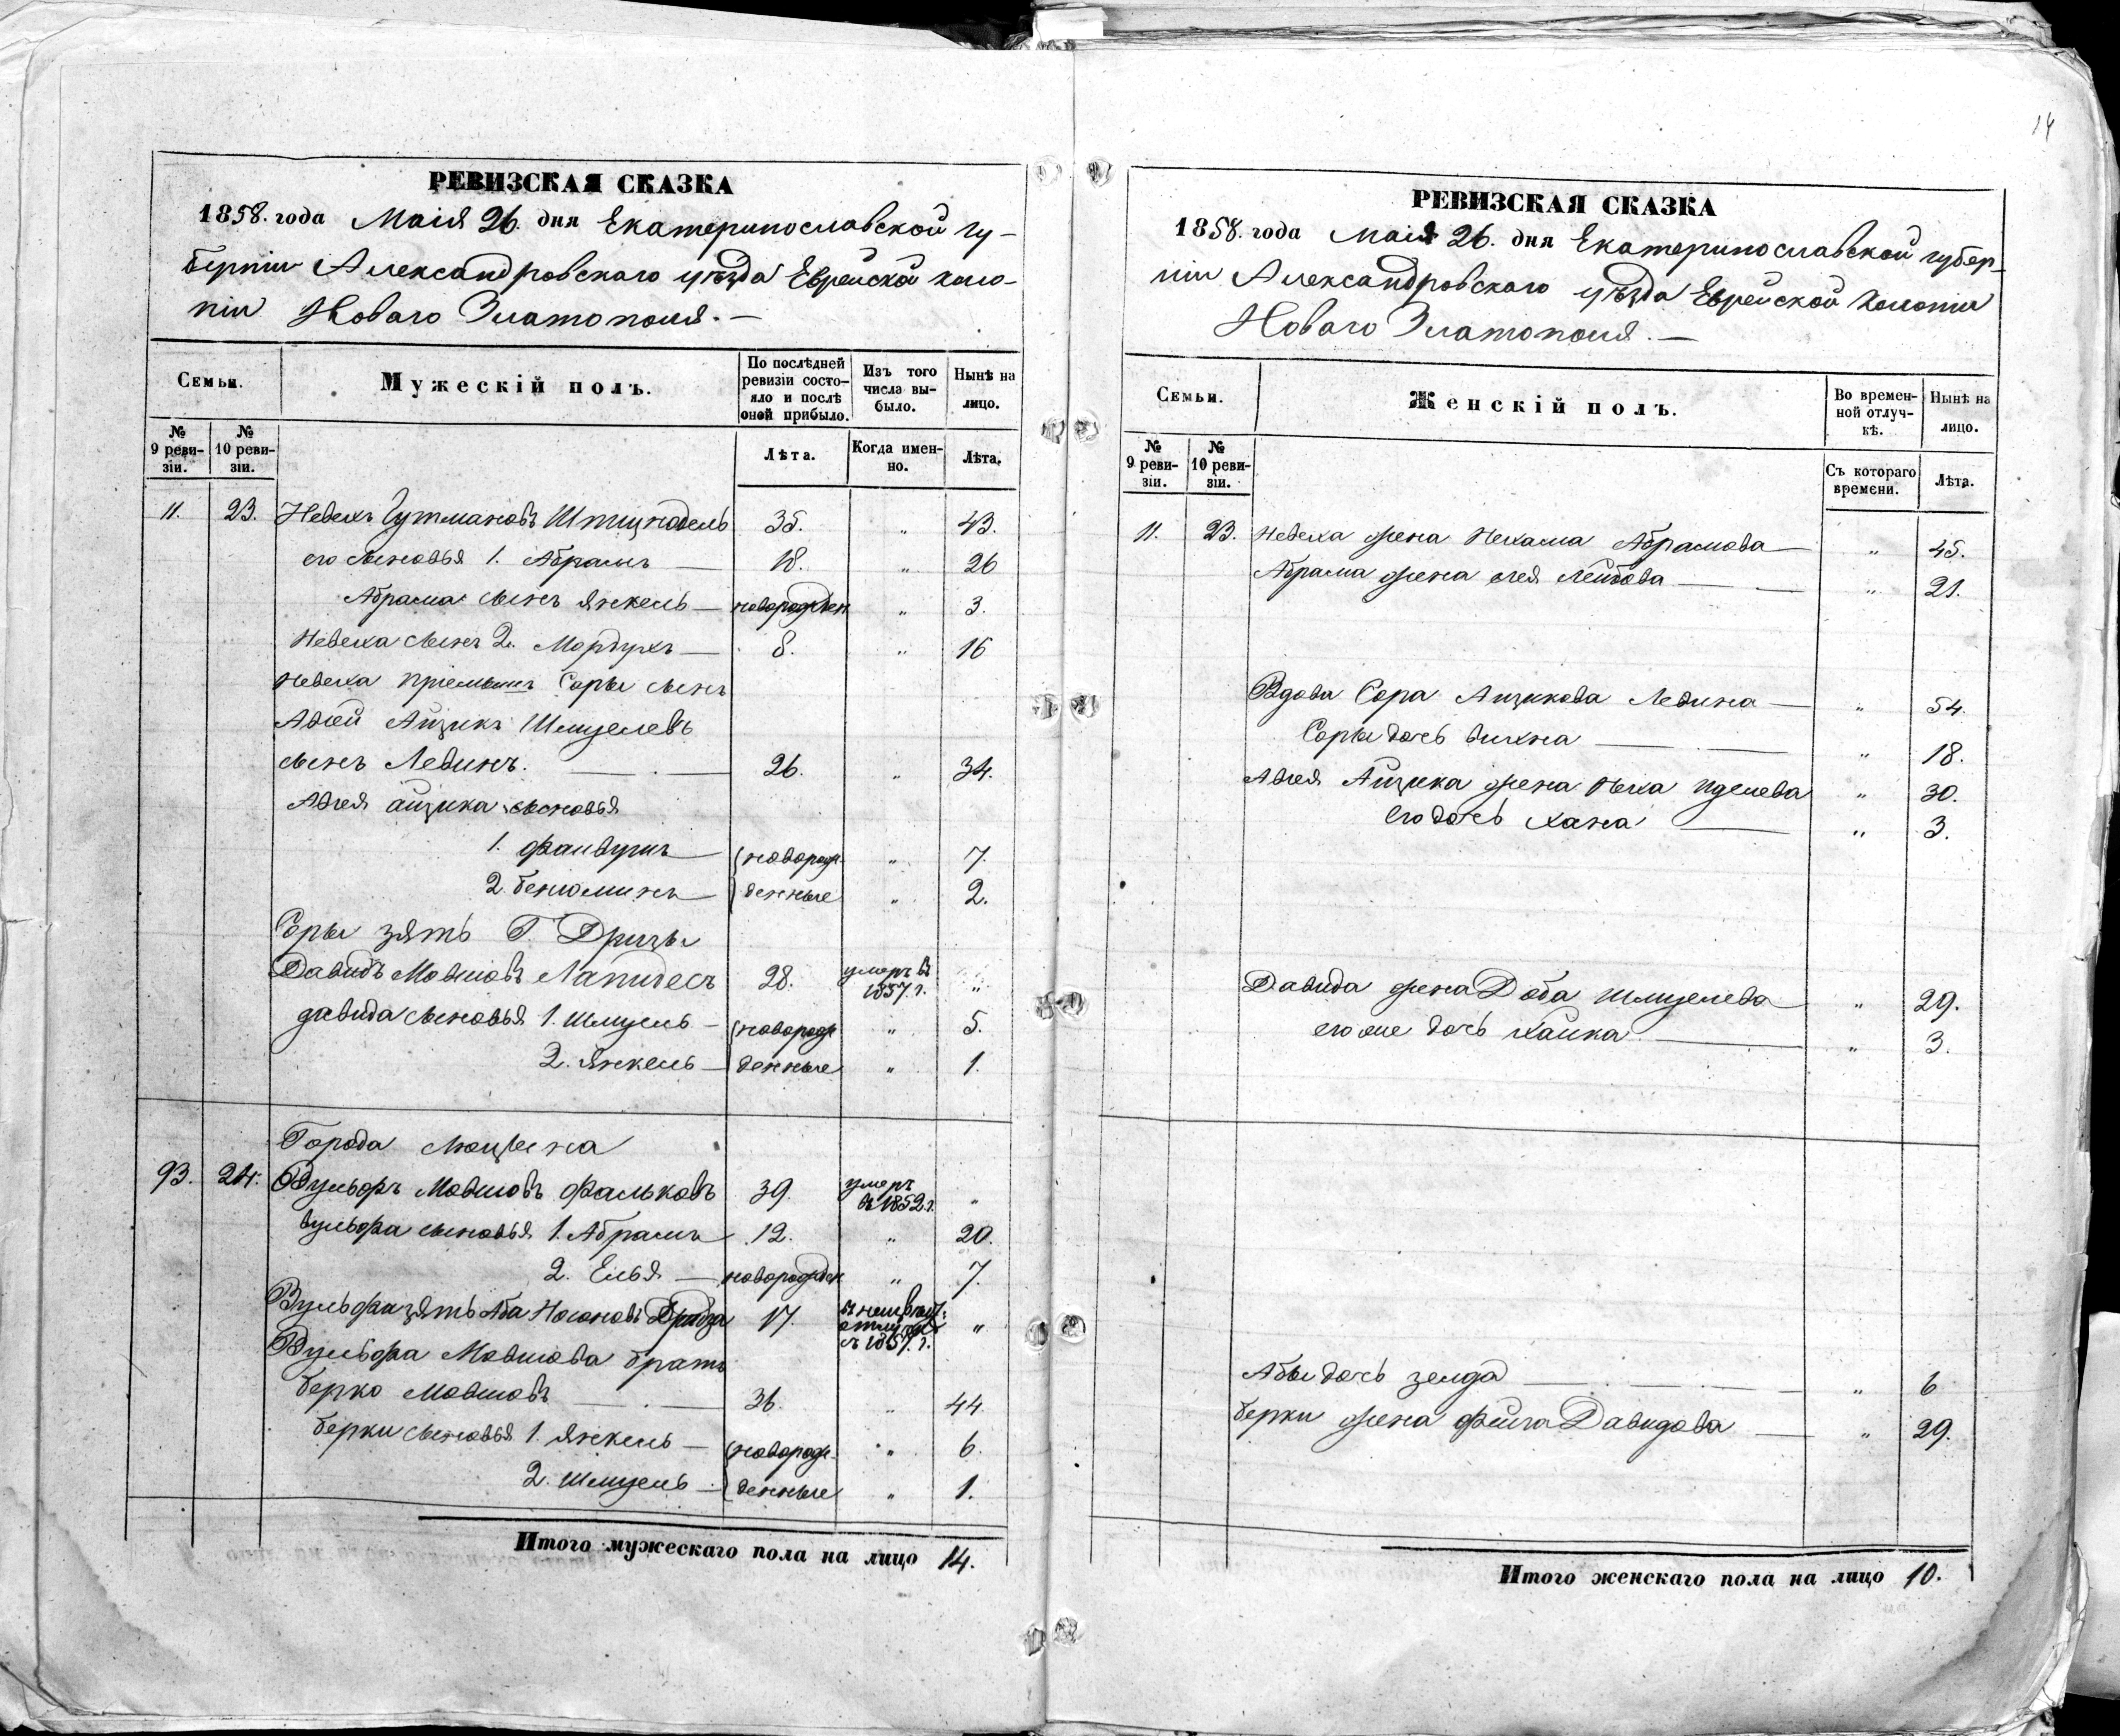 14
РЕВИЗСКАЯ СКАЗКА
1858. года Маія 26. дня Екатеринославской гу-
берніи Александровскаго уѣзда Еврейской коло-
ніи Новаго Златополя. —
Семьи. Мужескій полъ. По послѣдней ревизіи состо-яло и послѣ оной прибыло. Изъ того числа вы-было. Нынѣ на лицо.
№ 9 реви-зіи. № 10 реви-зіи. Лѣта. Когда имен-но. Лѣта.
11. 23. Невехъ Гутмановъ 35. „ 43.
его сыновья 1. Абрамъ — 18. „ 26
Абрама сынъ Янкель — новорожден „ 3.
Невеха сынъ 2. Мордухъ — 8. „ 16
Невеха пріемышъ Соры сынъ
Айзикъ Шмуелевъ
сынъ Левинъ. — 26. „ 34.
Айзика сыновья
1. Файвушъ — новорож „ 7.
2. Беніоминъ — денные „ 2.
Соры зять Г. Дризы
Давидъ Мовшовъ Лапидесъ 28. умеръ въ 1857. г. „
Давида сыновья 1. Шмуель — новорож „ 5.
2. Янкель — денные „ 1.
Города Люцина
93. 24. Вульфъ Мовшовъ Фальковъ 39. умеръ въ 1852. г. „
Вульфа сыновья 1. Абрамъ 12. „ 20.
2. Елья — новорожден „ 7.
Вульфа зять Аба Носоновъ 17. съ 1857. г. „
Вульфа Мовшова братъ
Берко Мовшовъ — 36. „ 44.
Берки сыновья 1. Янкель — новорож „ 6.
2. Шмуель — денные „ 1.
Итого мужескаго пола на лицо 14.
РЕВИЗСКАЯ СКАЗКА
1858. года Маія 26. дня Екатеринославской губер-
ніи Александровскаго уѣзда Еврейской Колоніи
Новаго Златополя. —
Семьи. Женскій полъ. Во времен-ной отлуч-кѣ. Нынѣ на лицо.
№ 9 реви-зіи. № 10 реви-зіи. Съ котораго времени. Лѣта.
11. 23. Невеха жена Нехама Абрамова — „ 45.
Абрама жена Лея Лейбова — „ 21.
Вдова Сора Айзикова Левина — „ 54.
Соры дочь — „ 18.
Айзика жена Иделева „ 30.
его дочь Хана — „ 3.
Давида жена Доба Шмуелева — „ 29.
его же дочь Хайка — „ 3.
Абы дочь Зелда — „ 6
Берки жена Фейга Давидова — „ 29.
Итого женскаго пола на лицо 10.